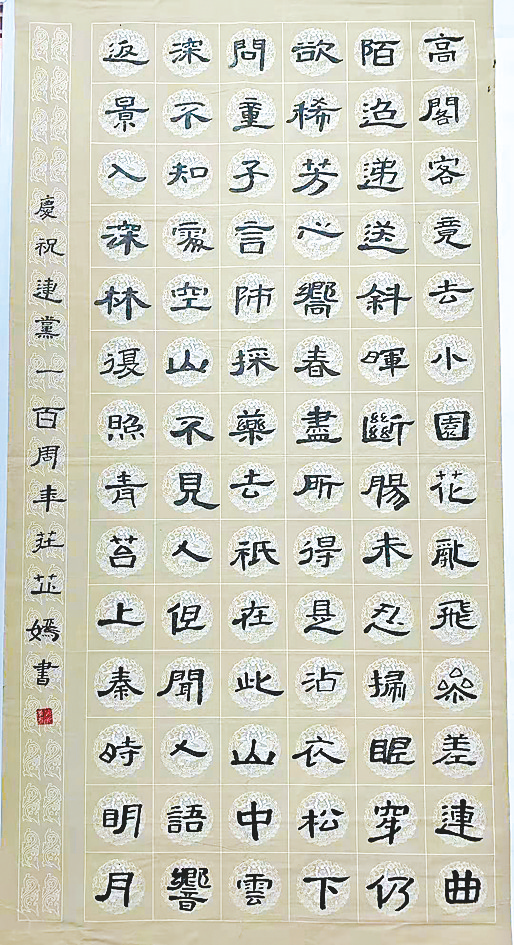 高閣客竟去小園花亂飛參差連曲
陌迢遞送斜暉斷腸未忍掃眼穿仍
欲稀芳心嚮春盡所得是沾衣松下
問童子言師採藥去祇在此山中雲
深不知處空山不見人但聞人語響
返景入深林復照青苔上秦時明月
慶祝建黨一百周年莊芷嫣書